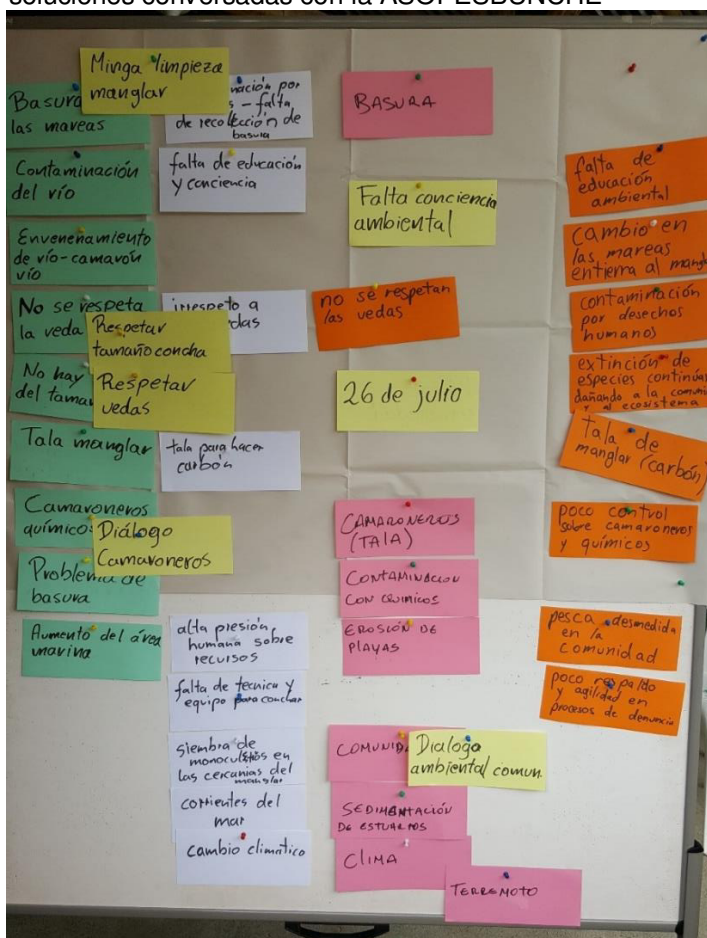 soluciones conversadas con la ASOPESBUNCHE
Minga limpieza
manglar
Basura
las mareas
Contaminación
del río
Envenenamiento
de río-camarón
río
No se respeta
la veda
Respetar
tamaño concha
No hay
del
Respetar
vedas
Tala manglar
Camaroneros
químicos
Diálogo
Camaroneros
Problema de
basura
Aumento del área
marina
por
falta
de recolección de
basura
falta de educación
y conciencia
irrespeto a
tala para hacer
carbón
alta presión
humana sobre
recursos
falta de tecnica y
equipo para conchar
siembra de
monocultivos en
las cercanias del
manglar
corrientes del
mar
cambio climatico
BASURA
Falta conciencia
ambiental
no se respetan
las vedas
26 de julio
CAMARONEROS
(TALA)
CONTAMINACION
CON QUIMICOS
EROSIÓN DE
PLAYAS
Dialogo
ambiental comun.
SEDIMENTACIÓN
DE ESTUARIOS
CLIMA
TERREMOTO
falta de
educación
ambiental
cambio en
las mareas
entierra al
contaminación
por desechos
humanos
extinción de
especies
dañando a la
y al ecosistema
Tala de
manglar (carbón)
poco control
sobre camaroneros
y químicos
pesca desmedida
en la
comunidad
poco respaldo
y agilidad en
procesos de denuncia